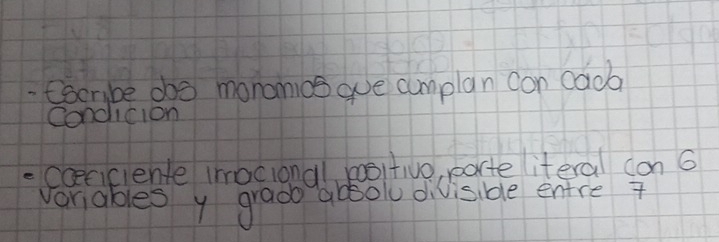 - Escribe dos monomios que cumplan con cada
condicion
• coeficiente irracional, positivo, parte literal con 6
variables y grado absolu divisible entre 7